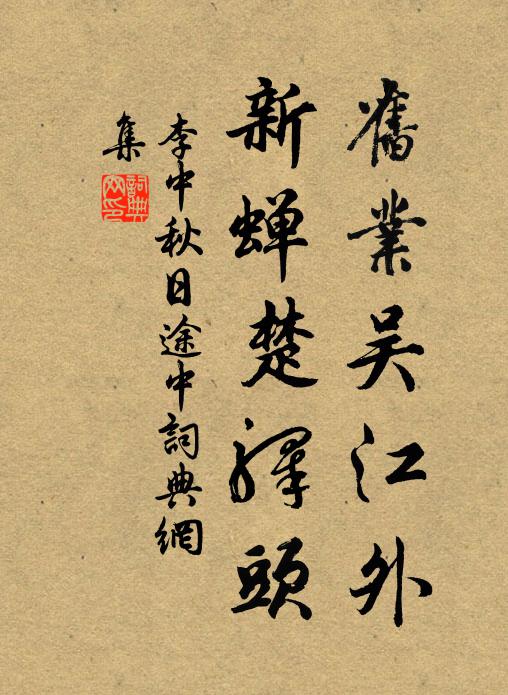 舊業吴江外
新蟬楚驛頭
李中秋日途中詞典網
集
詞典
网印